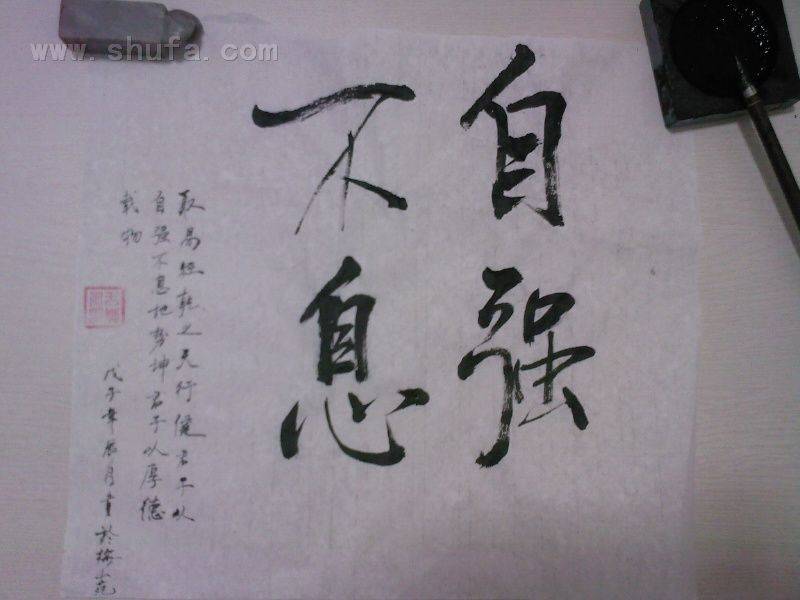 www.shufa.com
自强
不息
取易经乾之天行健君子以
自强不息地势坤君子以厚德
载物
戊子年辰月书於梅苑